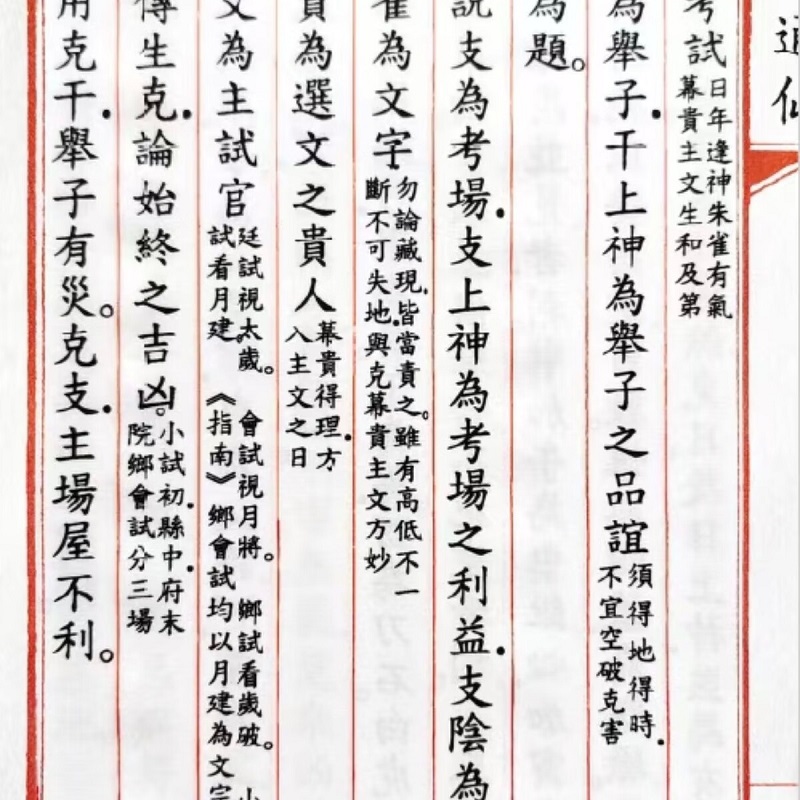 考試日年逢神朱雀有氣幕貴主文生和及第
為舉子干上神為舉子之品誼須得地得時不宜空破克害
為題。
說支為考場支上神為考場之利益支陰為
雀為文字勿論藏現皆當責之。雖有高低不一斷不可失地與克幕貴主文方妙
貴為選文之貴人幕貴得理方入主文之日
文為主試官廷試視太歲。會試視月將。鄉試看歲破。小試看月建《指南》鄉會試均以月建為文宗
傳生克論始終之吉凶。小試初縣中府末院鄉會試分三場
用克干舉子有災。克支主場屋不利。